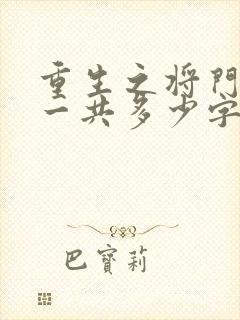 重生之将門
一共多少字
巴寶莉